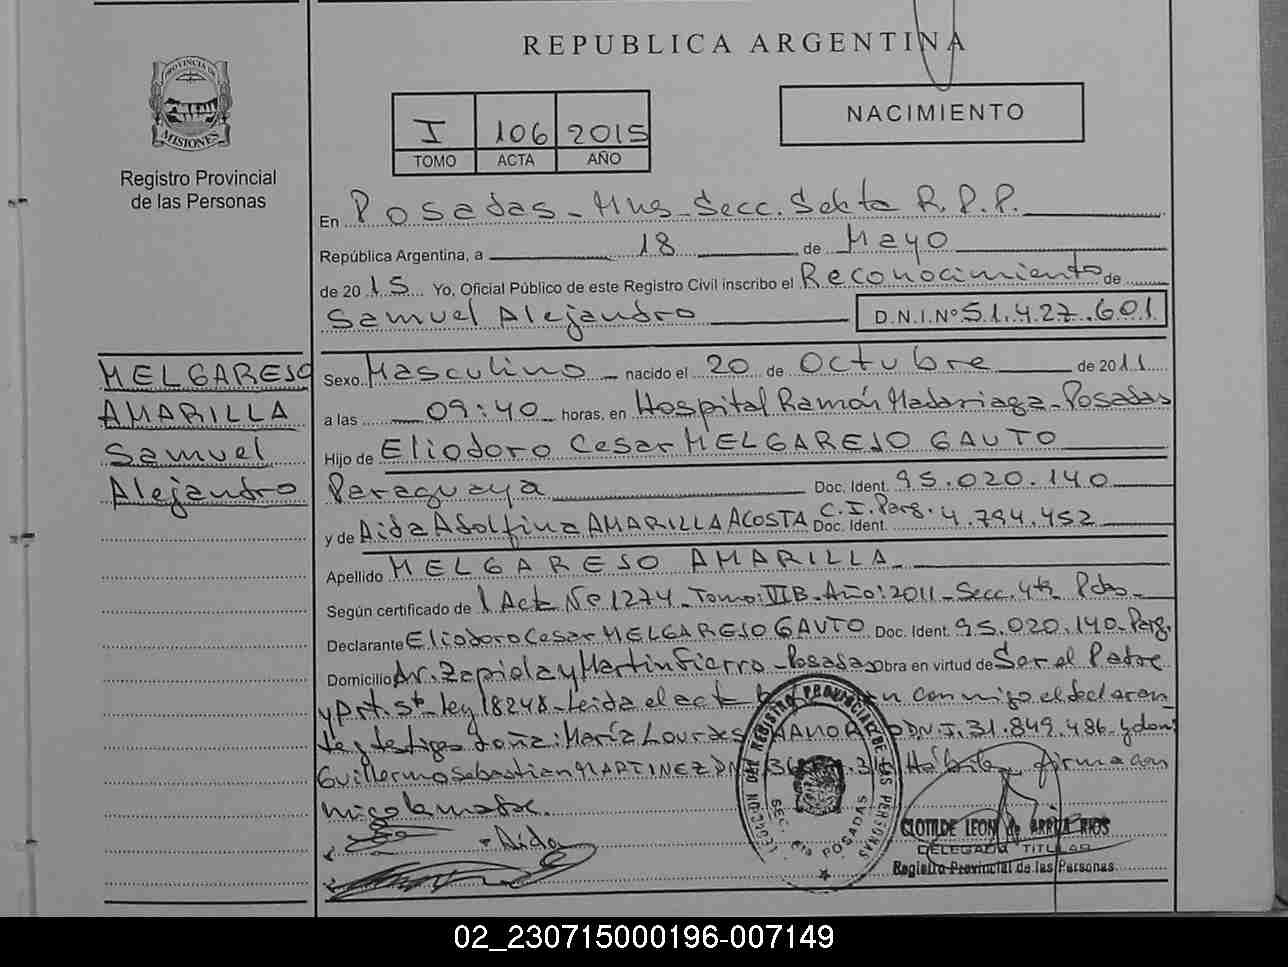 REPUBLICA ARGENTINA
PROVINCIA DE
MISIONES
Registro Provincial
de las Personas
I 106 2015
TOMO ACTA AÑO
NACIMIENTO
En Posadas - Mns - Secc. Sexta R.P.P.
República Argentina, a 18 de Mayo
de 2015 Yo, Oficial Público de este Registro Civil inscribo el Reconocimiento de
Samuel Alejandro D.N.I.Nº 51.427.601
MELGAREJO
AMARILLA
Samuel
Alejandro
Sexo Masculino nacido el 20 de Octubre de 2011
a las 09:40 horas, en Hospital Ramón Madariaga - Posadas
Hijo de Eliodoro Cesar MELGAREJO GAUTO
Paraguaya Doc. Ident. 95.020.140
y de Aida Adolfina AMARILLA ACOSTA C.I. Parg. Doc. Ident. 4.794.452
Apellido MELGAREJO AMARILLA
Según certificado de 1 Acta Nº 1274 - Tomo: VII B - Año: 2011 - Secc. 4ta Pdas
Declarante Eliodoro Cesar MELGAREJO GAUTO Doc. Ident. 95.020.140 - Parg.
Domicilio Av. Zapiola y Martin Fierro - Posadas Obra en virtud de Ser el Padre
y Art. 5to Ley 18248 - Leida el acta conmigo el declaran
te y testigos doña: María Lourdes D.N.I. 31.849.486 y don:
Guillermo Sebastian MARTINEZ firma con
migo la madre.
Aida
REGISTRO PROVINCIAL DE LAS PERSONAS
SEC. 6ta POSADAS
CLOTILDE LEON de ARRUA RIOS
DELEGADA TITULAR
Registro Provincial de las Personas
02_230715000196-007149